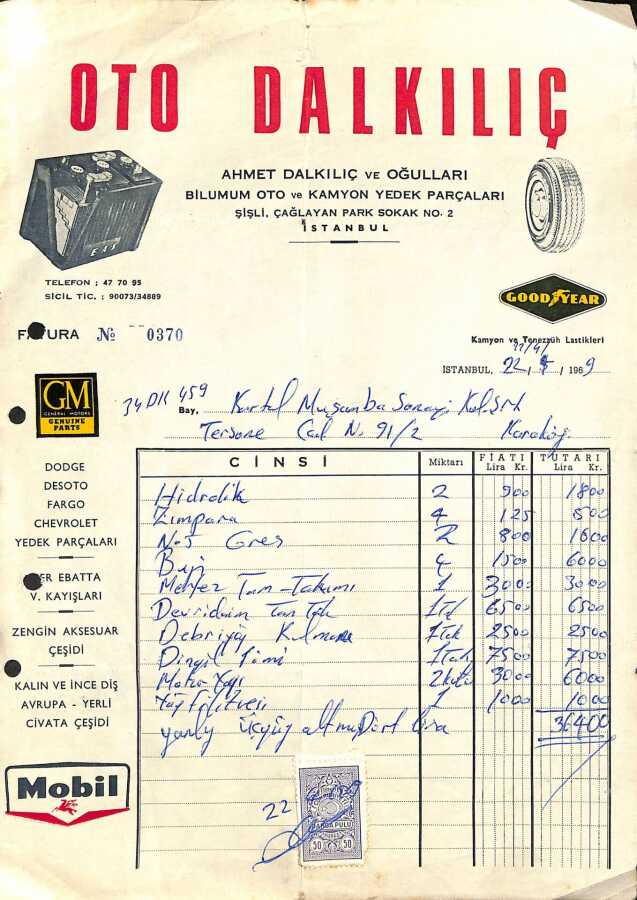 OTO DALKILIÇ
AHMET DALKILIÇ VE OĞULLARI
BILUMUM OTO ve KAMYON YEDEK PARÇALARI
ŞİŞLİ, ÇAĞLAYAN PARK SOKAK NO. 2
İSTANBUL
EAS
TELEFON : 47 70 95
SİCİL TİC. : 90073/34889
GOODYEAR
Kamyon ve Tenezzüh Lastikleri
FATURA № 0370
İSTANBUL, 22, / 1969
GM
GENERAL MOTORS
GENUINE
PARTS
34 DK 459
Bay, Kartal Muşamba Sanayi
Tersane Cad No. 91/2 Karaköy
CİNSİ Miktarı FİATI TUTARI
Lira Kr. Lira Kr.
Hidrolik 2 900 1800
Zımpara 4 125 500
No 5 Gres 2 800 1600
Buji 4 1500 6000
Tam Takımı 1 3000 3000
Devridaim 6500 6500
Debriyaj 2500 2500
Dingil 7500 7500
Motor Yağı 2 kutu 3000 6000
Yağ filtresi 1 1000 1000
36400
Yalnız üçyüz altmışdört lira
DODGE
DESOTO
FARGO
CHEVROLET
YEDEK PARÇALARI
ER EBATTA
V. KAYIŞLARI
ZENGİN AKSESUAR
ÇEŞİDİ
KALIN VE İNCE DİŞ
AVRUPA - YERLİ
CIVATA ÇEŞİDİ
Mobil
22
DAMGA PULU
50 50